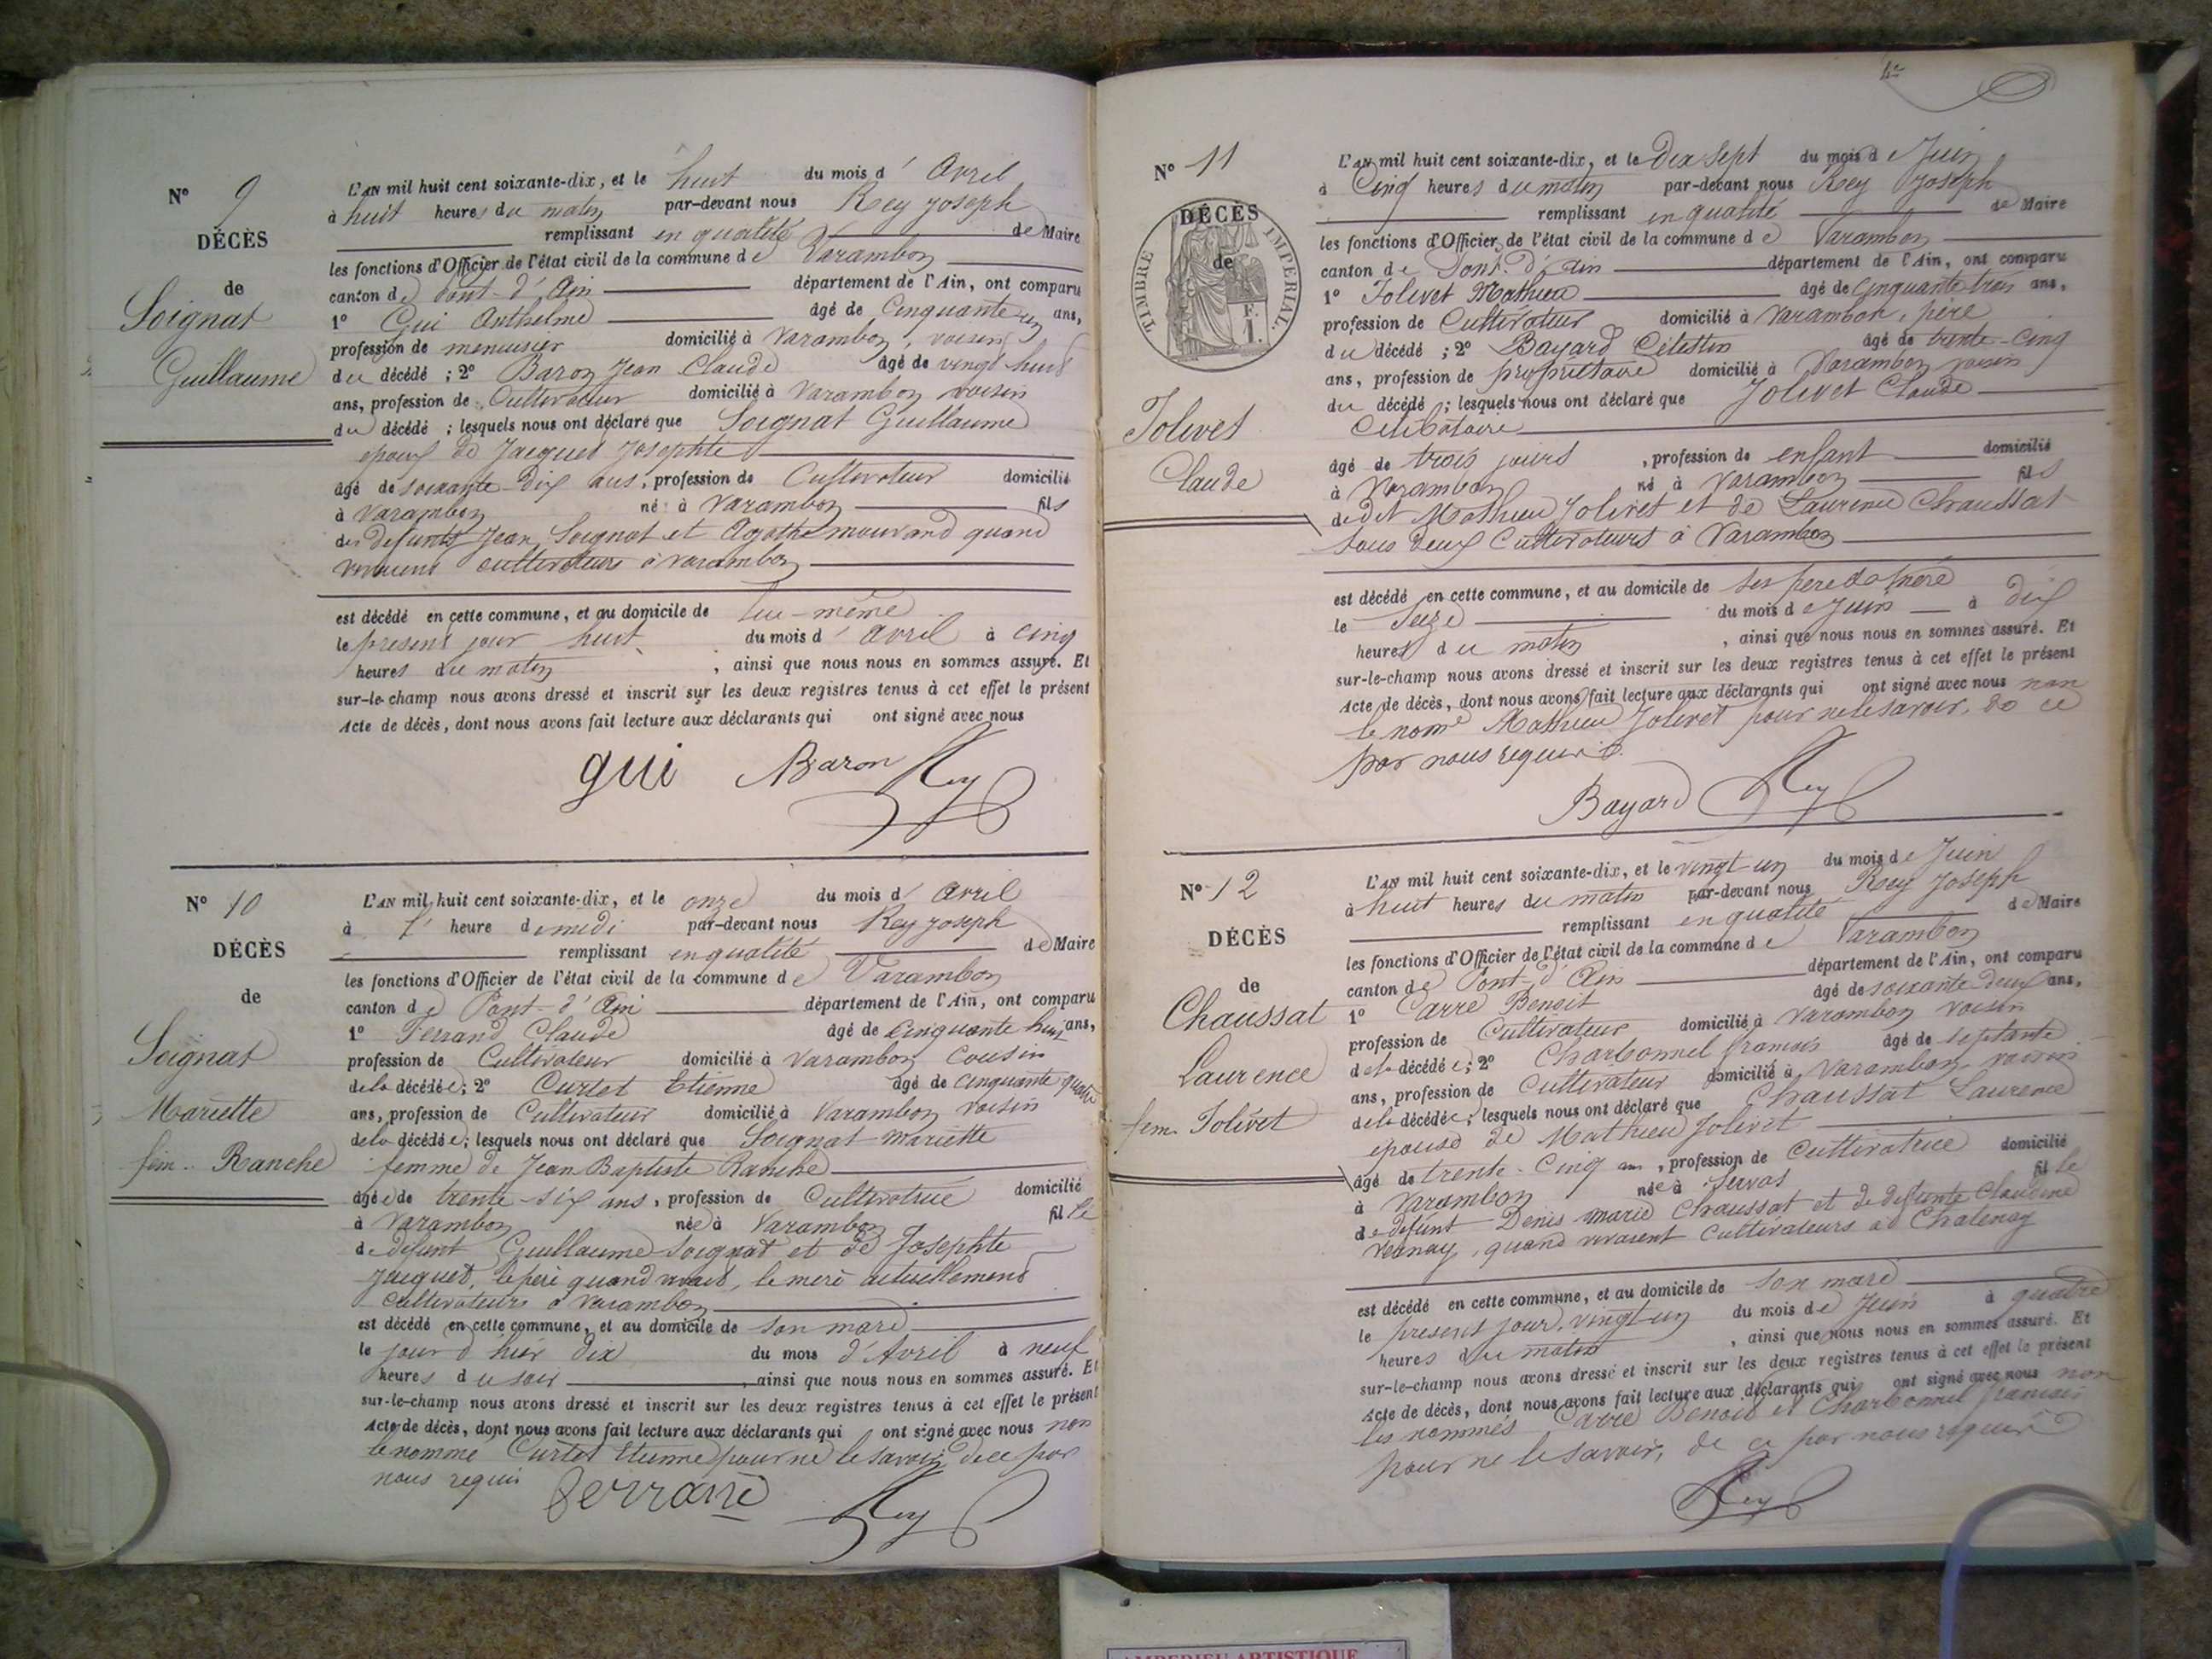 N° 9
DÉCÈS
de
Soignat
Guillaume
L'AN mil huit cent soixante-dix, et le huit du mois d' Avril
à huit heures du matin par-devant nous Rey Joseph
remplissant en qualité de Maire
les fonctions d'Officier de l'état civil de la commune de Varambon
canton de Pont-d'Ain département de l'Ain, ont comparu
1° Gui Anthelme âgé de Cinquante un ans,
profession de menuisier domicilié à Varambon, voisin
du décédé ; 2° Baron Jean Claude âgé de vingt huit
ans, profession de Cultivateur domicilié à Varambon voisin
du décédé ; lesquels nous ont déclaré que Soignat Guillaume
époux de Jacquet Josephte
âgé de soixante-dix ans, profession de Cultivateur domicilié
à Varambon né à Varambon fils
des defunts Jean Soignat et Agathe mouvand quand
vivaient cultivateurs à Varambon
est décédé en cette commune, et au domicile de lui-même
le present jour huit du mois d' avril à cinq
heures du matin, ainsi que nous nous en sommes assuré. Et
sur-le-champ nous avons dressé et inscrit sur les deux registres tenus à cet effet le présent
Acte de décès, dont nous avons fait lecture aux déclarants qui ont signé avec nous
gui Baron Rey
N° 10
DÉCÈS
de
Soignat
Mariette
fem. Ranche
L'AN mil huit cent soixante-dix, et le onze du mois d' Avril
à l' heure de midi par-devant nous Rey Joseph
remplissant en qualité de Maire
les fonctions d'Officier de l'état civil de la commune de Varambon
canton de Pont-d'Ain département de l'Ain, ont comparu
1° Ferrand Claude âgé de Cinquante huit ans,
profession de Cultivateur domicilié à Varambon Cousin
de la décédée; 2° Curtet Etienne âgé de cinquante quatre
ans, profession de Cultivateur domicilié à Varambon voisin
de la décédée; lesquels nous ont déclaré que Soignat mariette
femme de Jean Baptiste Ranche
âgée de trente-six ans, profession de Cultivatrice domicilié
à Varambon née à Varambon fille
de defunt Guillaume Soignat et de Josephte
Jacquet, le père quand vivait, le mere actuellement
Cultivateurs à Varambon
est décédé en cette commune, et au domicile de son mari
le jour d'hier dix du mois d'Avril à neuf
heures du soir, ainsi que nous nous en sommes assuré. Et
sur-le-champ nous avons dressé et inscrit sur les deux registres tenus à cet effet le présent
Acte de décès, dont nous avons fait lecture aux déclarants qui ont signé avec nous non
le nommé Curtet Etienne pour ne le savoir, de ce par
nous requis Ferrand Rey
N° 11
DÉCÈS
de
TIMBRE IMPÉRIAL.
F.
1.
Jolivet
Claude
L'AN mil huit cent soixante-dix, et le Dix Sept du mois de Juin
à Cinq heures du matin par-devant nous Rey Joseph
remplissant en qualité de Maire
les fonctions d'Officier de l'état civil de la commune de Varambon
canton de Pont-d'Ain département de l'Ain, ont comparu
1° Jolivet Mathieu âgé de Cinquante trois ans,
profession de Cultivateur domicilié à Varambon, père
du décédé ; 2° Bayard Célestin âgé de trente-cinq
ans, profession de propriétaire domicilié à Varambon voisin
du décédé ; lesquels nous ont déclaré que Jolivet Claude
Célibataire
âgé de trois jours, profession de enfant domicilié
à Varambon né à Varambon fils
de dit Mathieu Jolivet et de Laurence Chaussat
tous deux Cultivateurs à Varambon
est décédé en cette commune, et au domicile de ses pere et mere
le Seize du mois de Juin à dix
heures du matin, ainsi que nous nous en sommes assuré. Et
sur-le-champ nous avons dressé et inscrit sur les deux registres tenus à cet effet le présent
Acte de décès, dont nous avons fait lecture aux déclarants qui ont signé avec nous non
le nomé Mathieu Jolivet pour ne le savoir, de ce
par nous requis.
Bayard Rey
N° 12
DÉCÈS
de
Chaussat
Laurence
fem. Jolivet
L'AN mil huit cent soixante-dix, et le vingt-un du mois de Juin
à huit heures du matin par-devant nous Rey Joseph
remplissant en qualité de Maire
les fonctions d'Officier de l'état civil de la commune de Varambon
canton de Pont-d'Ain département de l'Ain, ont comparu
1° Carre Benoit âgé de soixante deux ans,
profession de Cultivateur domicilié à Varambon voisin
de la décédée; 2° Charbonnel françois âgé de septante
ans, profession de Cultivateur domicilié à Varambon voisin
de la décédée; lesquels nous ont déclaré que Chaussat Laurence
épouse de Mathieu Jolivet
âgé de trente-cinq ans, profession de Cultivatrice domicilié
à Varambon née à Servas fille
de defunt Denis marie Chaussat et de defunte Claudine
Vernay, quand vivaient Cultivateurs à Chatenay
est décédé en cette commune, et au domicile de son mari
le present jour, vingt-un du mois de Juin à quatre
heures du matin, ainsi que nous nous en sommes assuré. Et
sur-le-champ nous avons dressé et inscrit sur les deux registres tenus à cet effet le présent
Acte de décès, dont nous avons fait lecture aux déclarants qui ont signé avec nous non
les nommés Carre Benoit et Charbonnel françois
pour ne le savoir, de ce par nous requis
Rey
AMBERIEU ARTISTIQUE